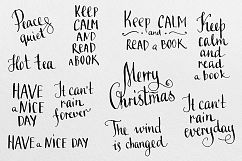 Peace
quiet
Hot tea
HAVE
a NICE
DAY
HAVE a NICE DAY
KEEP
CALM
AND
READ
A BOOK
It can't
rain
forever
KEEP CALM
and
READ A BOOK
Merry
Christmas
The wind
is changed
Keep
calm
and
read
a book
It can't
rain
everyday